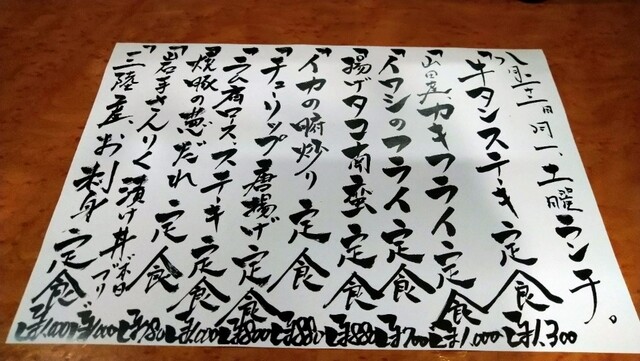 土曜ランチ。
「牛タンステーキ定食 1,300
「山田産カキフライ定食 1,000
「イワシのフライ定食 700
「揚げタコ南蛮定食 880
「イカの腑炒り定食 880
「チューリップ唐揚げ定食 800
ロース、ステーキ定食 1,000
「焼豚の葱だれ定食 780
「岩手さんりく漬け丼 1,000
「三陸産お刺身定食 1,000